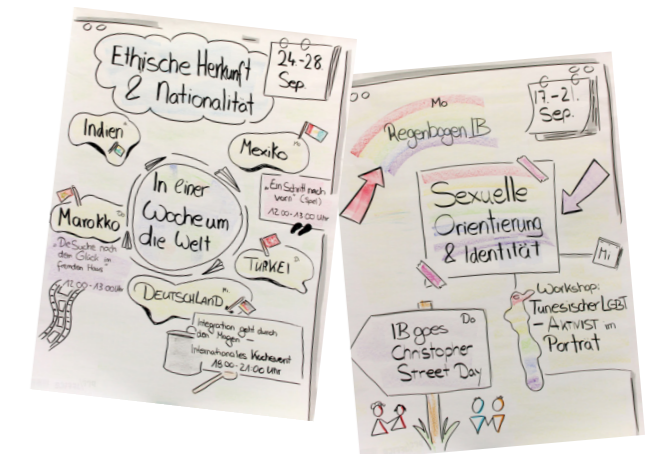 Ethische Herkunft
& Nationalität
24.-28.
Sep.
Indien
Mexiko
Mo
„Ein Schritt nach
vorn" (Spiel)
12.00-13.00 Uhr
In einer
Woche um
die Welt
Marokko
Do
„Die Suche nach
dem Glück im
fremden Haus"
12.00-13.00 Uhr
TÜRKEI
D
DEUTSCHLAND
Mi
Integration geht durch
den Magen
Internationales Kochevent
18.00-21:00 Uhr
Mo
Regenbogen IB
17.-21.
Sep.
Sexuelle
Orientierung
& Identität
Mi
Workshop:
Tunesischer LGBT
- AKTIVIST im
Portrat
Do
IB goes
Christopher
Street Day